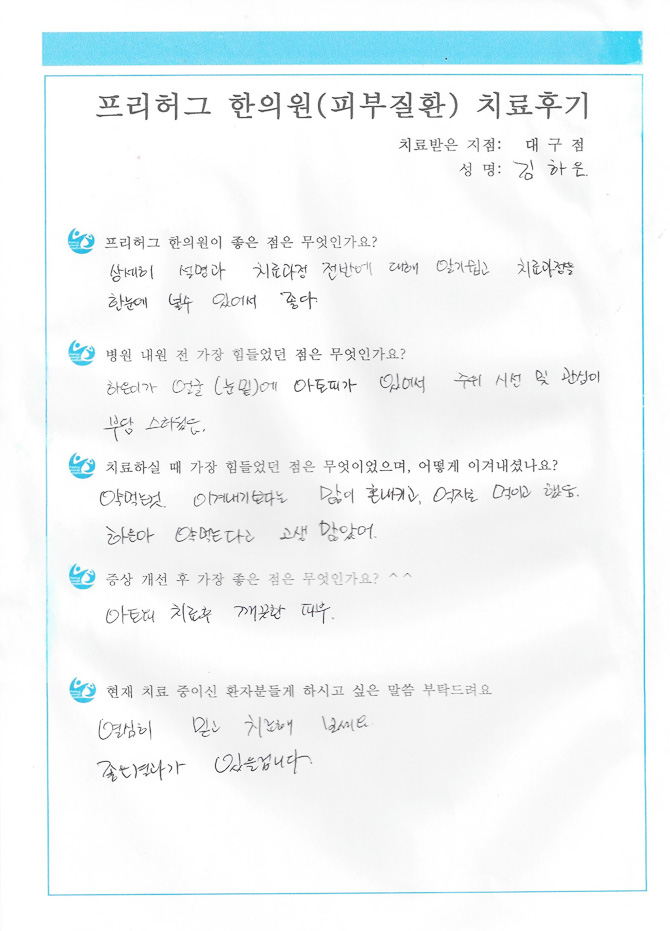 프리허그 한의원(피부질환) 치료후기
치료받은 지점: 대구점
성 명: 김하은
프리허그 한의원이 좋은 점은 무엇인가요?
상세히 설명과 치료과정 전반에 대해 알기쉽고 치료과정을
한눈에 볼수 있어서 좋다.
병원 내원 전 가장 힘들었던 점은 무엇인가요?
하은이가 얼굴(눈밑)에 아토피가 있어서 주위 시선 및 관심이
부담 스러웠음.
치료하실 때 가장 힘들었던 점은 무엇이었으며, 어떻게 이겨내셨나요?
약먹는것. 이겨내기보다는 많이 혼내키고, 억지로 먹이고 했음.
하은아 약먹는다고 고생 많았어.
증상 개선 후 가장 좋은 점은 무엇인가요? ^^
아토피 치료후 깨끗한 피부.
현재 치료 중이신 환자분들게 하시고 싶은 말씀 부탁드려요
열심히 믿고 치료해 보세요.
좋은결과가 있을겁니다.